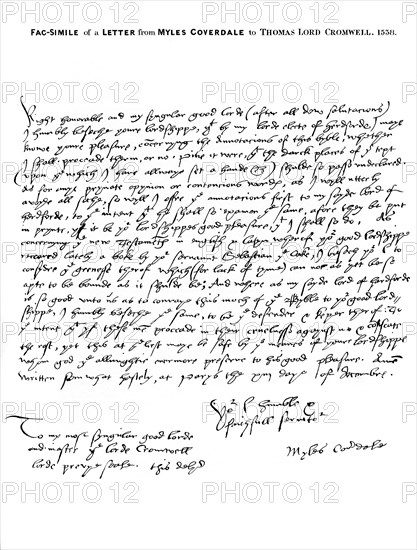 FAC-SIMILE of a LETTER from MYLES COVERDALE to THOMAS LORD CROMWELL. 1538.
Right honorable and my syngular good lorde (after all dew salutacions)
I humbly beseche youre lordshippe, yt by my lorde electe of herdforde I maye
knowe youre pleasure, concernyng the Annotations of this byble, whether
I shall proceade therin, or no. Pitie it were, yt the darck places of ye text
(upon ye which I have allwaye set a hande) shulde so passe undeclared.
As for any pryvate opynion or contencious wordes, as I wyll utterly
avoyde all soche, so wyll I offre ye annotations first to my sayde lord of
herdforde, to ye intent yt he shall so examen ye same, afore they be put
in prynt, yf it be yor lordshippes good pleasure, yt I shall so do. As
concernyng ye new Testaments in english & latyn, wherof yor good lordshippe
receaved lately a boke by yor servaunt Sebastian ye coke, I besech yor l. to
consider ye grenesse therof which (for lack of tyme) can not as yet be so
apte to be bounde as it shulde be. And where as my sayde lord of herdforde
is so good unto us as to convaye this moch of ye Byble to yor good lord-
shippe, I humbly beseche ye same, to be ye defender & keper therof: To
ye intent yt yf these men proceade in their cruelnesse agaynst us & confiscate
the rest, yet this at ye lest maye be safe by ye meanes of youre lordshippe
whom god ye allmightie evermore preserve to his good pleasure. Amen.
Written som what hastely, at Parys the day of Decembre.
Yor l. humble &
faythfull servitor
Myles Coverdale
To my most syngular good lorde
and master ye lorde Cromwell
lorde prevye seale. this delyd
PHOTO 12